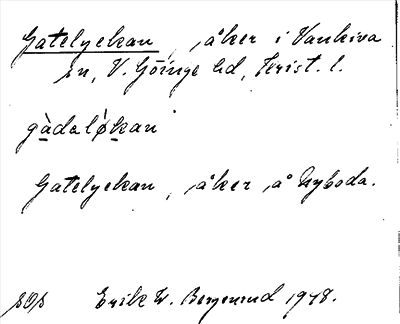 Gatelyckan, åker i Vankiva
sn, V. Göinge hd, Krist. l.
gàdaløkan
Gatelyckan, åker å Nyboda.
Erik W. Bergenrud 1948.